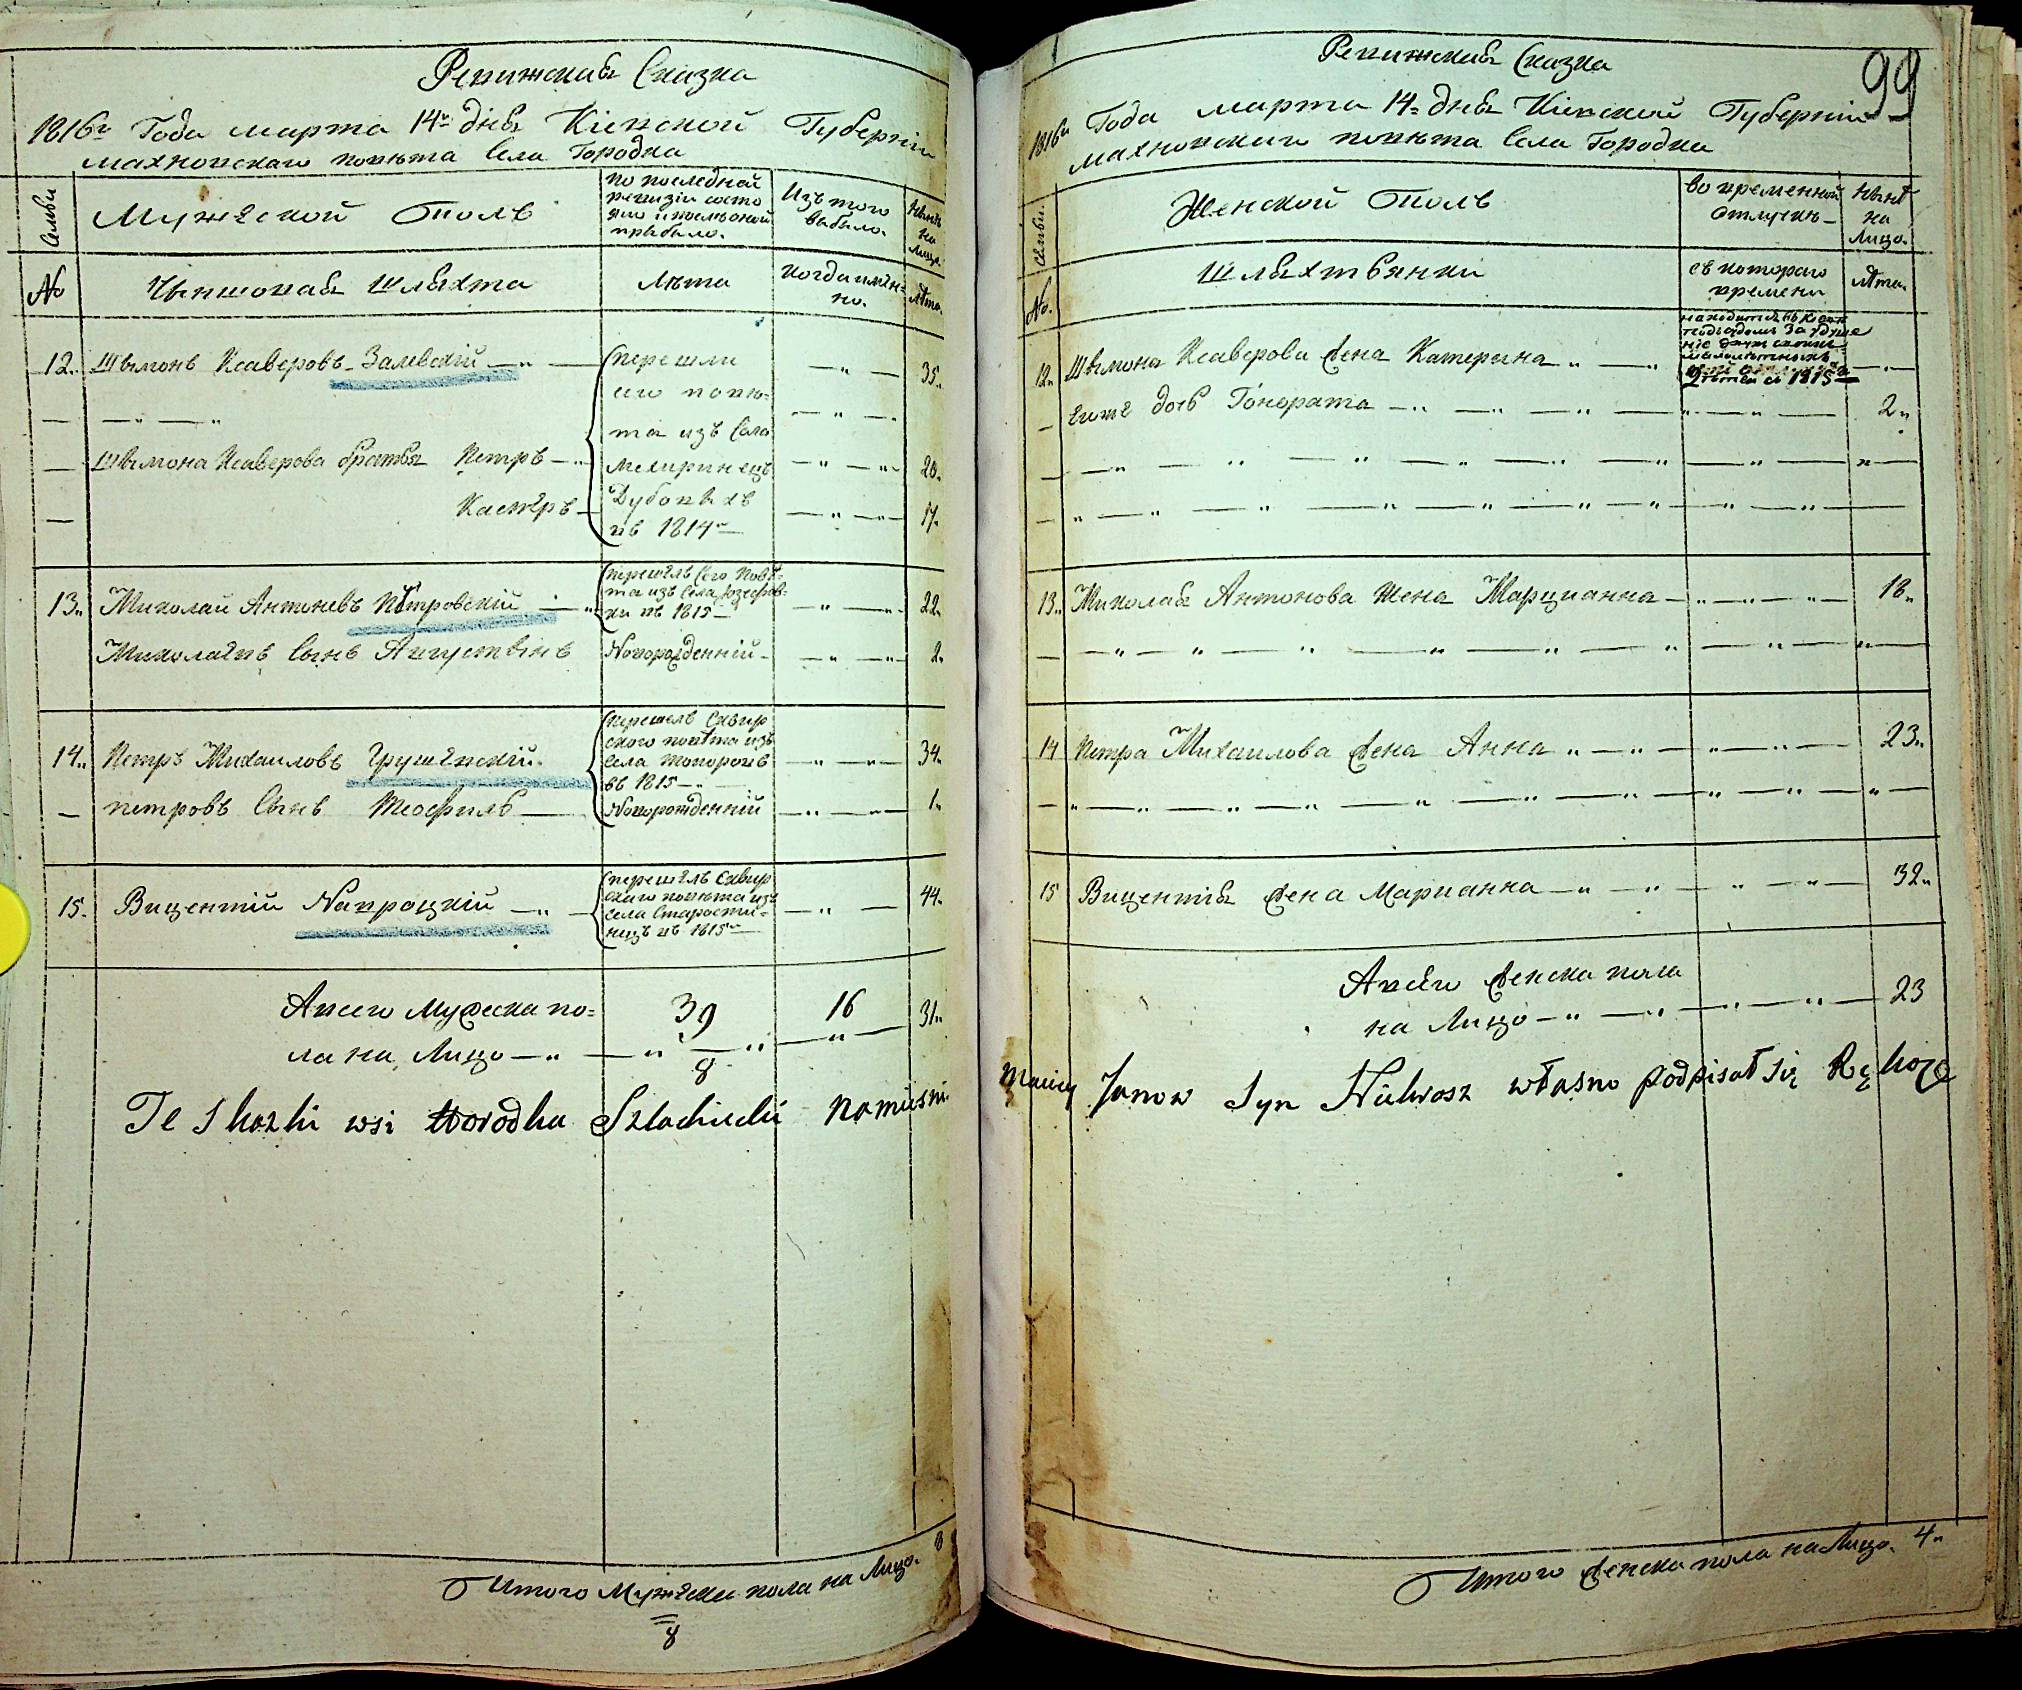 Ревижская Сказка
1816го Года марта 14го дня Кіевской Губерніи
махновскаго повѣта Села Городка
Семьи
Мужеской Полъ
по последной
ревизіи состо
яло и после оной
прибыло.
Изъ того
выбыло.
Нынѣ
на
лицо
№
Чыншовая Шляхта
Лѣта
когда имен=
но.
лѣта.
12. Шымонъ Ксаверовъ Залевскій — перешли — 35.
сего повѣ=
та изъ Села
Шымона Ксаверова братья Петръ — 20.
Касперъ — Дубовыхъ — 17.
въ 1814го
13. Миколай Антоневъ Петровскій — перешелъ сего повѣ=
та изъ Села
ки въ 1815 — 22.
Миколаевъ Сынъ Августынъ Новорожденній — 2.
14. Петръ Михаиловъ Грушевскій — перешелъ Сквир
ского повѣта изъ
села Топоровъ — 34.
въ 1815
Петровъ Сынъ Теофиль — Новорожденній — 1.
15. Вицентій Напроцкій — перешелъ Сквир
скаго повѣта изъ — 44.
села Старости=
нецъ въ 1815го
Авсего Мужеска по= 39 16 31.
ла на Лицо
8
Te Skazki wsi Horodka Szlachecki
Итого Мужеска пола на Лицо. 8
8
99
Ревижская Сказка
1816го Года марта 14го дня Кіевской Губерніи
махновскаго повѣта Села Городка
Семьи
Женской Полъ
во временной
отлучкѣ
Нынѣ
на
Лицо.
№.
Шляхтянки
съ котораго
времени
лѣта.
12. Шымона Ксаверова жена Катерына
малолѣтныхъ
1815
Ихже дочь Гонората — 2.
13. Миколая Антонова Жена Марцианна — 18.
14 Петра Михаилова жена Анна — 23.
15 Вицентія жена Марианна — 32.
Авсего женска пола
на Лицо — 23
Janow Syn własno podpisał się Ręko
Итого женска пола на Лицо. 4.